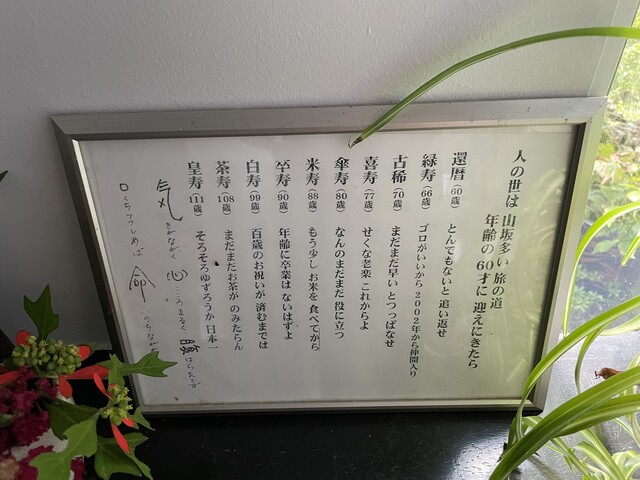 人の世は 山坂多い 旅の道
年齢の60才に 迎えにきたら
還暦(60歳) とんでもないと 追い返せ
緑寿(66歳) ゴロがいいから 2002年から仲間入り
古稀(70歳) まだまだ早い とつっぱなせ
喜寿(77歳) せくな老楽 これからよ
傘寿(80歳) なんのまだまだ 役に立つ
米寿(88歳) もう少し お米を 食べてから
卒寿(90歳) 年齢に卒業は ないはずよ
白寿(99歳) 百歳のお祝いが 済むまでは
茶寿(108歳) まだまだお茶が のみたらん
皇寿(111歳) そろそろゆずろうか 日本一
気 ながく 心 まるく 腹 はらたてず
口 つつしめば 命 ながし